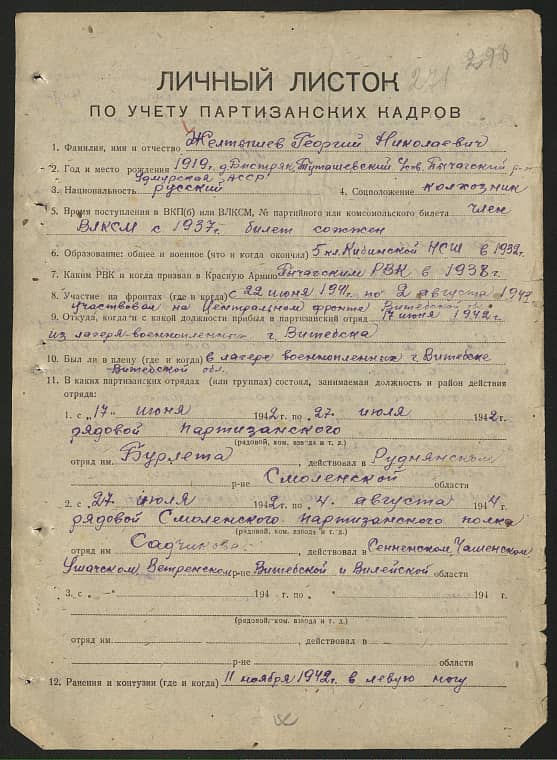 298
271
ЛИЧНЫЙ ЛИСТОК
ПО УЧЕТУ ПАРТИЗАНСКИХ КАДРОВ
1. Фамилия, имя и отчество Желтышев Георгий Николаевич
2. Год и место рождения 1919г. д. Быстряк, Туташевский с-св, Пычасский р-н
Удмурская АССР
3. Национальность русский 4. Соцположение колхозник
5. Время поступления в ВКП(б) или ВЛКСМ, № партийного или комсомольского билета член
ВЛКСМ с 1937г. билет сожжен
6. Образование: общее и военное (что и когда окончил) 5 кл. Кибинской НСШ в 1932г.
7. Каким РВК и когда призван в Красную Армию Пычасским РВК в 1938г.
8. Участие на фронтах (где и когда) с 22 июня 1941г. по 2 августа 1941г
участвовал на Центральном фронте Витебской обл.
9. Откуда, когда и с какой должности прибыл в партизанский отряд 17 июня 1942г.
из лагеря военнопленных г. Витебска
10. Был ли в плену (где и когда) в лагере военнопленных г. Витебске
Витебской обл.
11. В каких партизанских отрядах (или группах) состоял, занимаемая должность и район действия
отряда:
1. с „17" июня 1942 г. по 27 июля 1942 г.
рядовой партизанского
(рядовой, ком. взвода и т. д.)
отряд им. Бурлета, действовал в Руднянском
р-не Смоленской области
2. с 27 июля 1942 г. по 4 августа 1944 г.
рядовой Смоленского партизанского полка
(рядовой, ком. взвода и т. д.)
отряд им Садчикова, действовал в Сенненском, Чашенском
Ушачском Ветренском р-не Витебской и Вилейской области
3. с „—" 194 г. по " 194 г.
(рядовой, ком. взвода и т. д.)
отряд им. , действовал в
р-не области
12. Ранения и контузии (где и когда) 11 ноября 1942г. в левую ногу